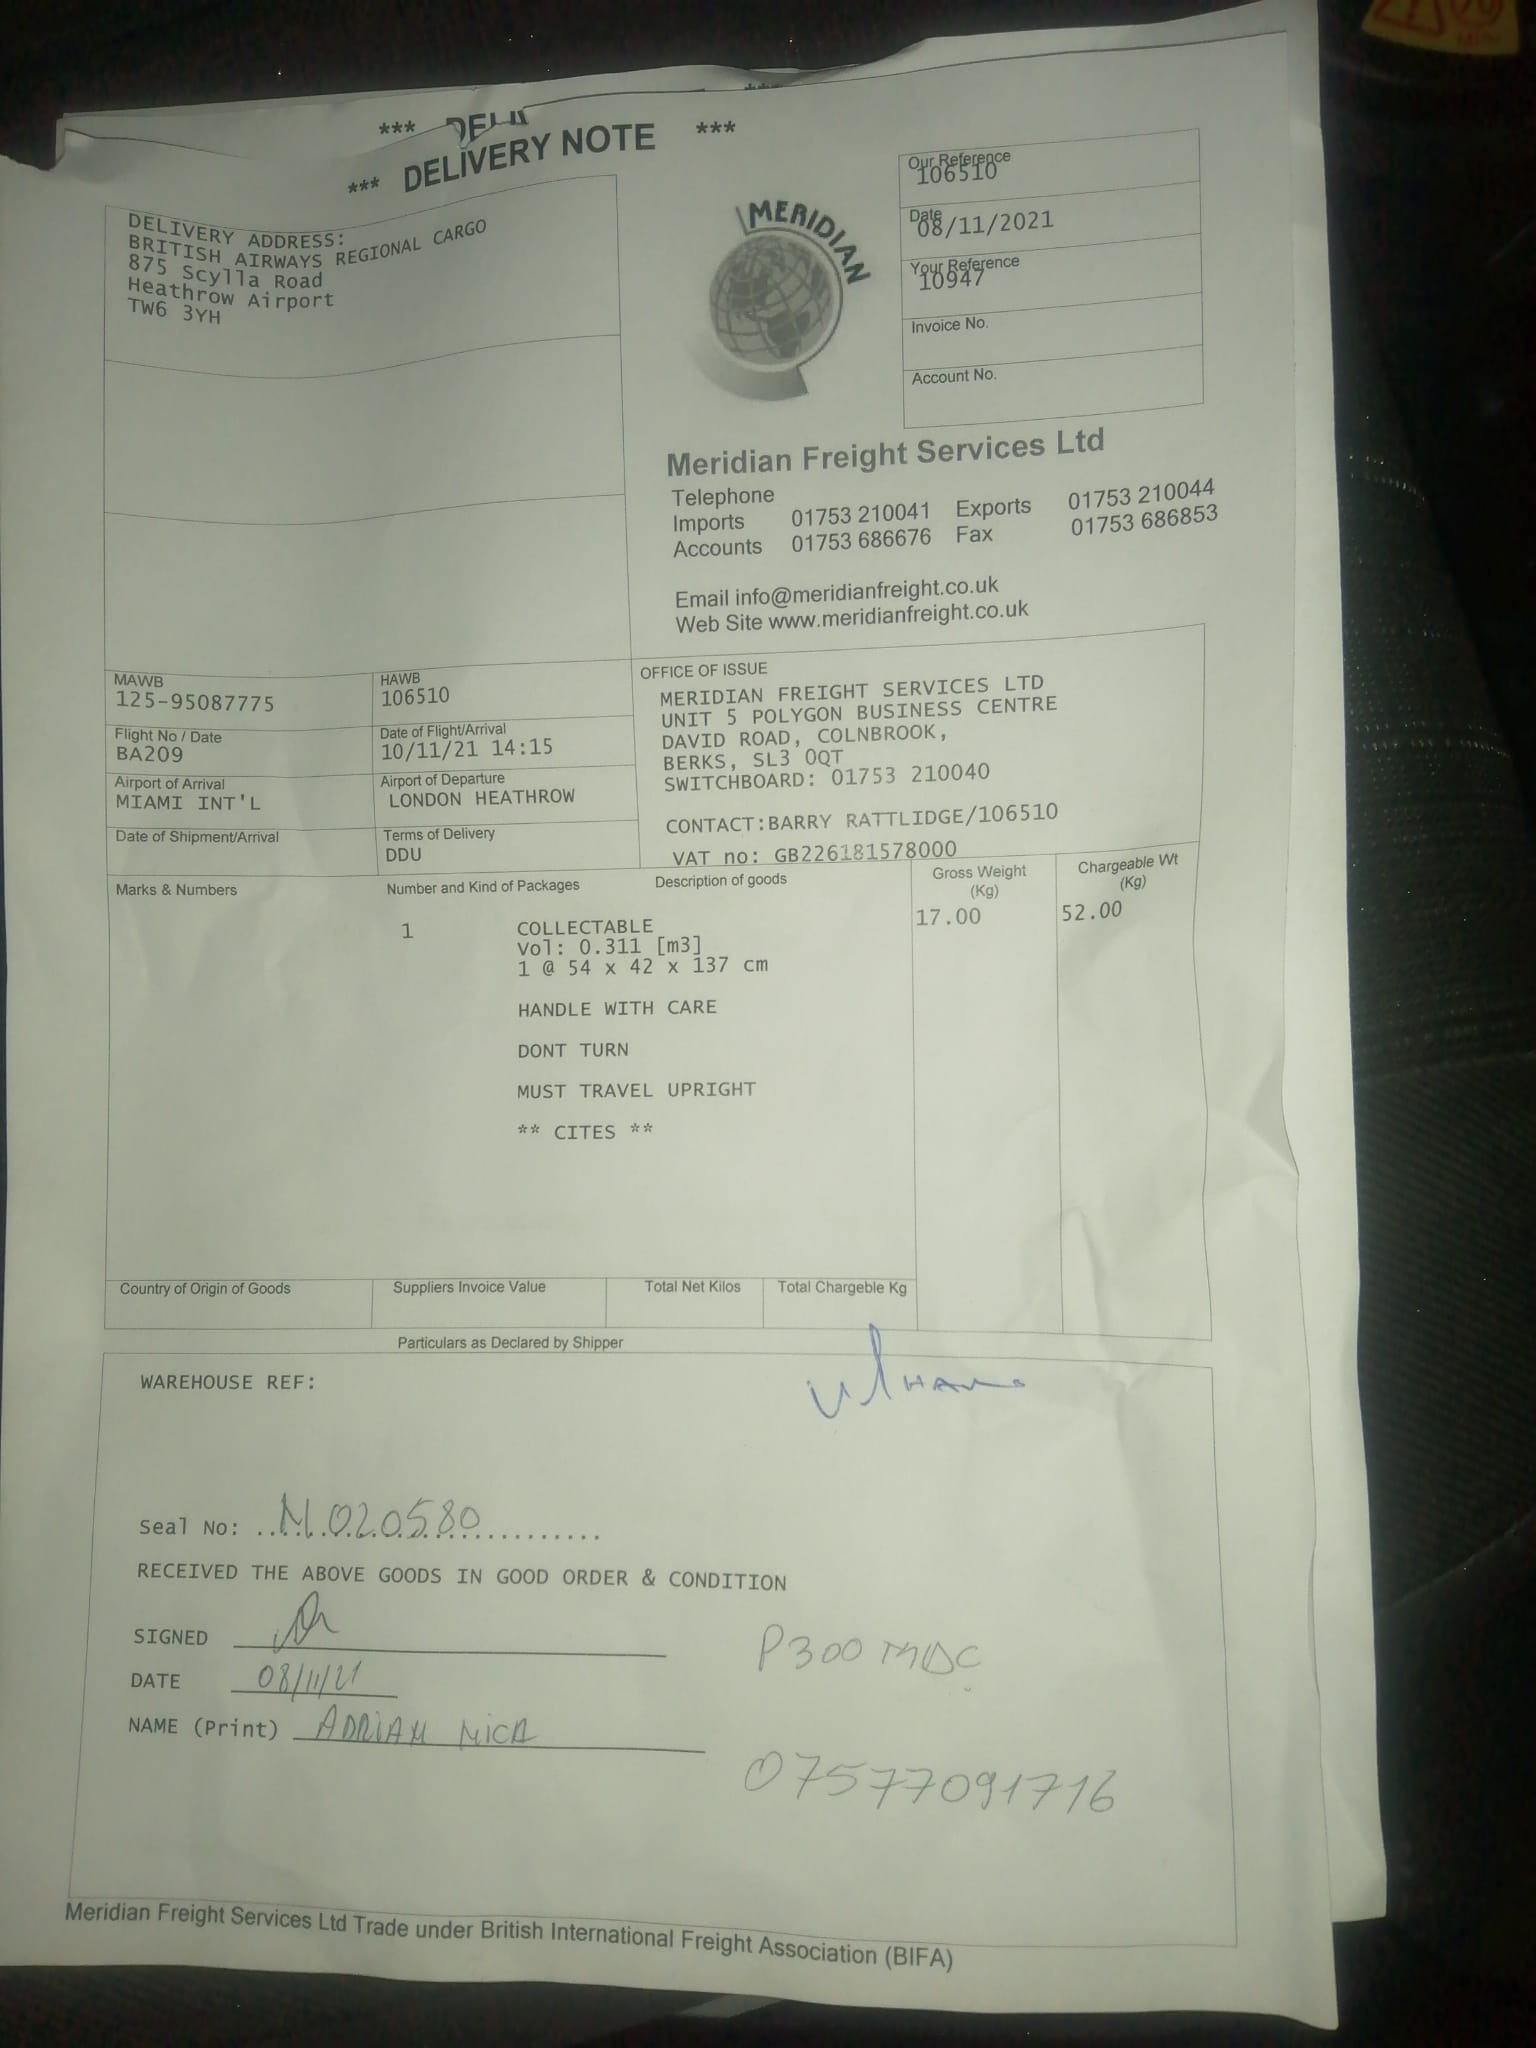 *** DELI
*** DELIVERY NOTE ***
DELIVERY ADDRESS:
BRITISH AIRWAYS REGIONAL CARGO
875 Scylla Road
Heathrow Airport
TW6 3YH
MERIDIAN
Our Reference
106510
Date
08/11/2021
Your Reference
10947
Invoice No.
Account No.
Meridian Freight Services Ltd
Telephone
Imports 01753 210041 Exports 01753 210044
Accounts 01753 686676 Fax 01753 686853
Email info@meridianfreight.co.uk
Web Site www.meridianfreight.co.uk
MAWB
125-95087775
HAWB
106510
Flight No / Date
BA209
Date of Flight/Arrival
10/11/21 14:15
Airport of Arrival
MIAMI INT'L
Airport of Departure
LONDON HEATHROW
Date of Shipment/Arrival
Terms of Delivery
DDU
OFFICE OF ISSUE
MERIDIAN FREIGHT SERVICES LTD
UNIT 5 POLYGON BUSINESS CENTRE
DAVID ROAD, COLNBROOK,
BERKS, SL3 0QT
SWITCHBOARD: 01753 210040
CONTACT:BARRY RATTLIDGE/106510
VAT no: GB226181578000
Marks & Numbers Number and Kind of Packages Description of goods Gross Weight (Kg) Chargeable Wt (Kg)
1 COLLECTABLE 17.00 52.00
Vol: 0.311 [m3]
1 @ 54 x 42 x 137 cm
HANDLE WITH CARE
DONT TURN
MUST TRAVEL UPRIGHT
** CITES **
Country of Origin of Goods Suppliers Invoice Value Total Net Kilos Total Chargeble Kg
Particulars as Declared by Shipper
WAREHOUSE REF:
Seal No: N020580
RECEIVED THE ABOVE GOODS IN GOOD ORDER & CONDITION
SIGNED
P300 MDC
DATE 08/11/21
NAME (Print) ADRIAN NICA
07577091716
Meridian Freight Services Ltd Trade under British International Freight Association (BIFA)